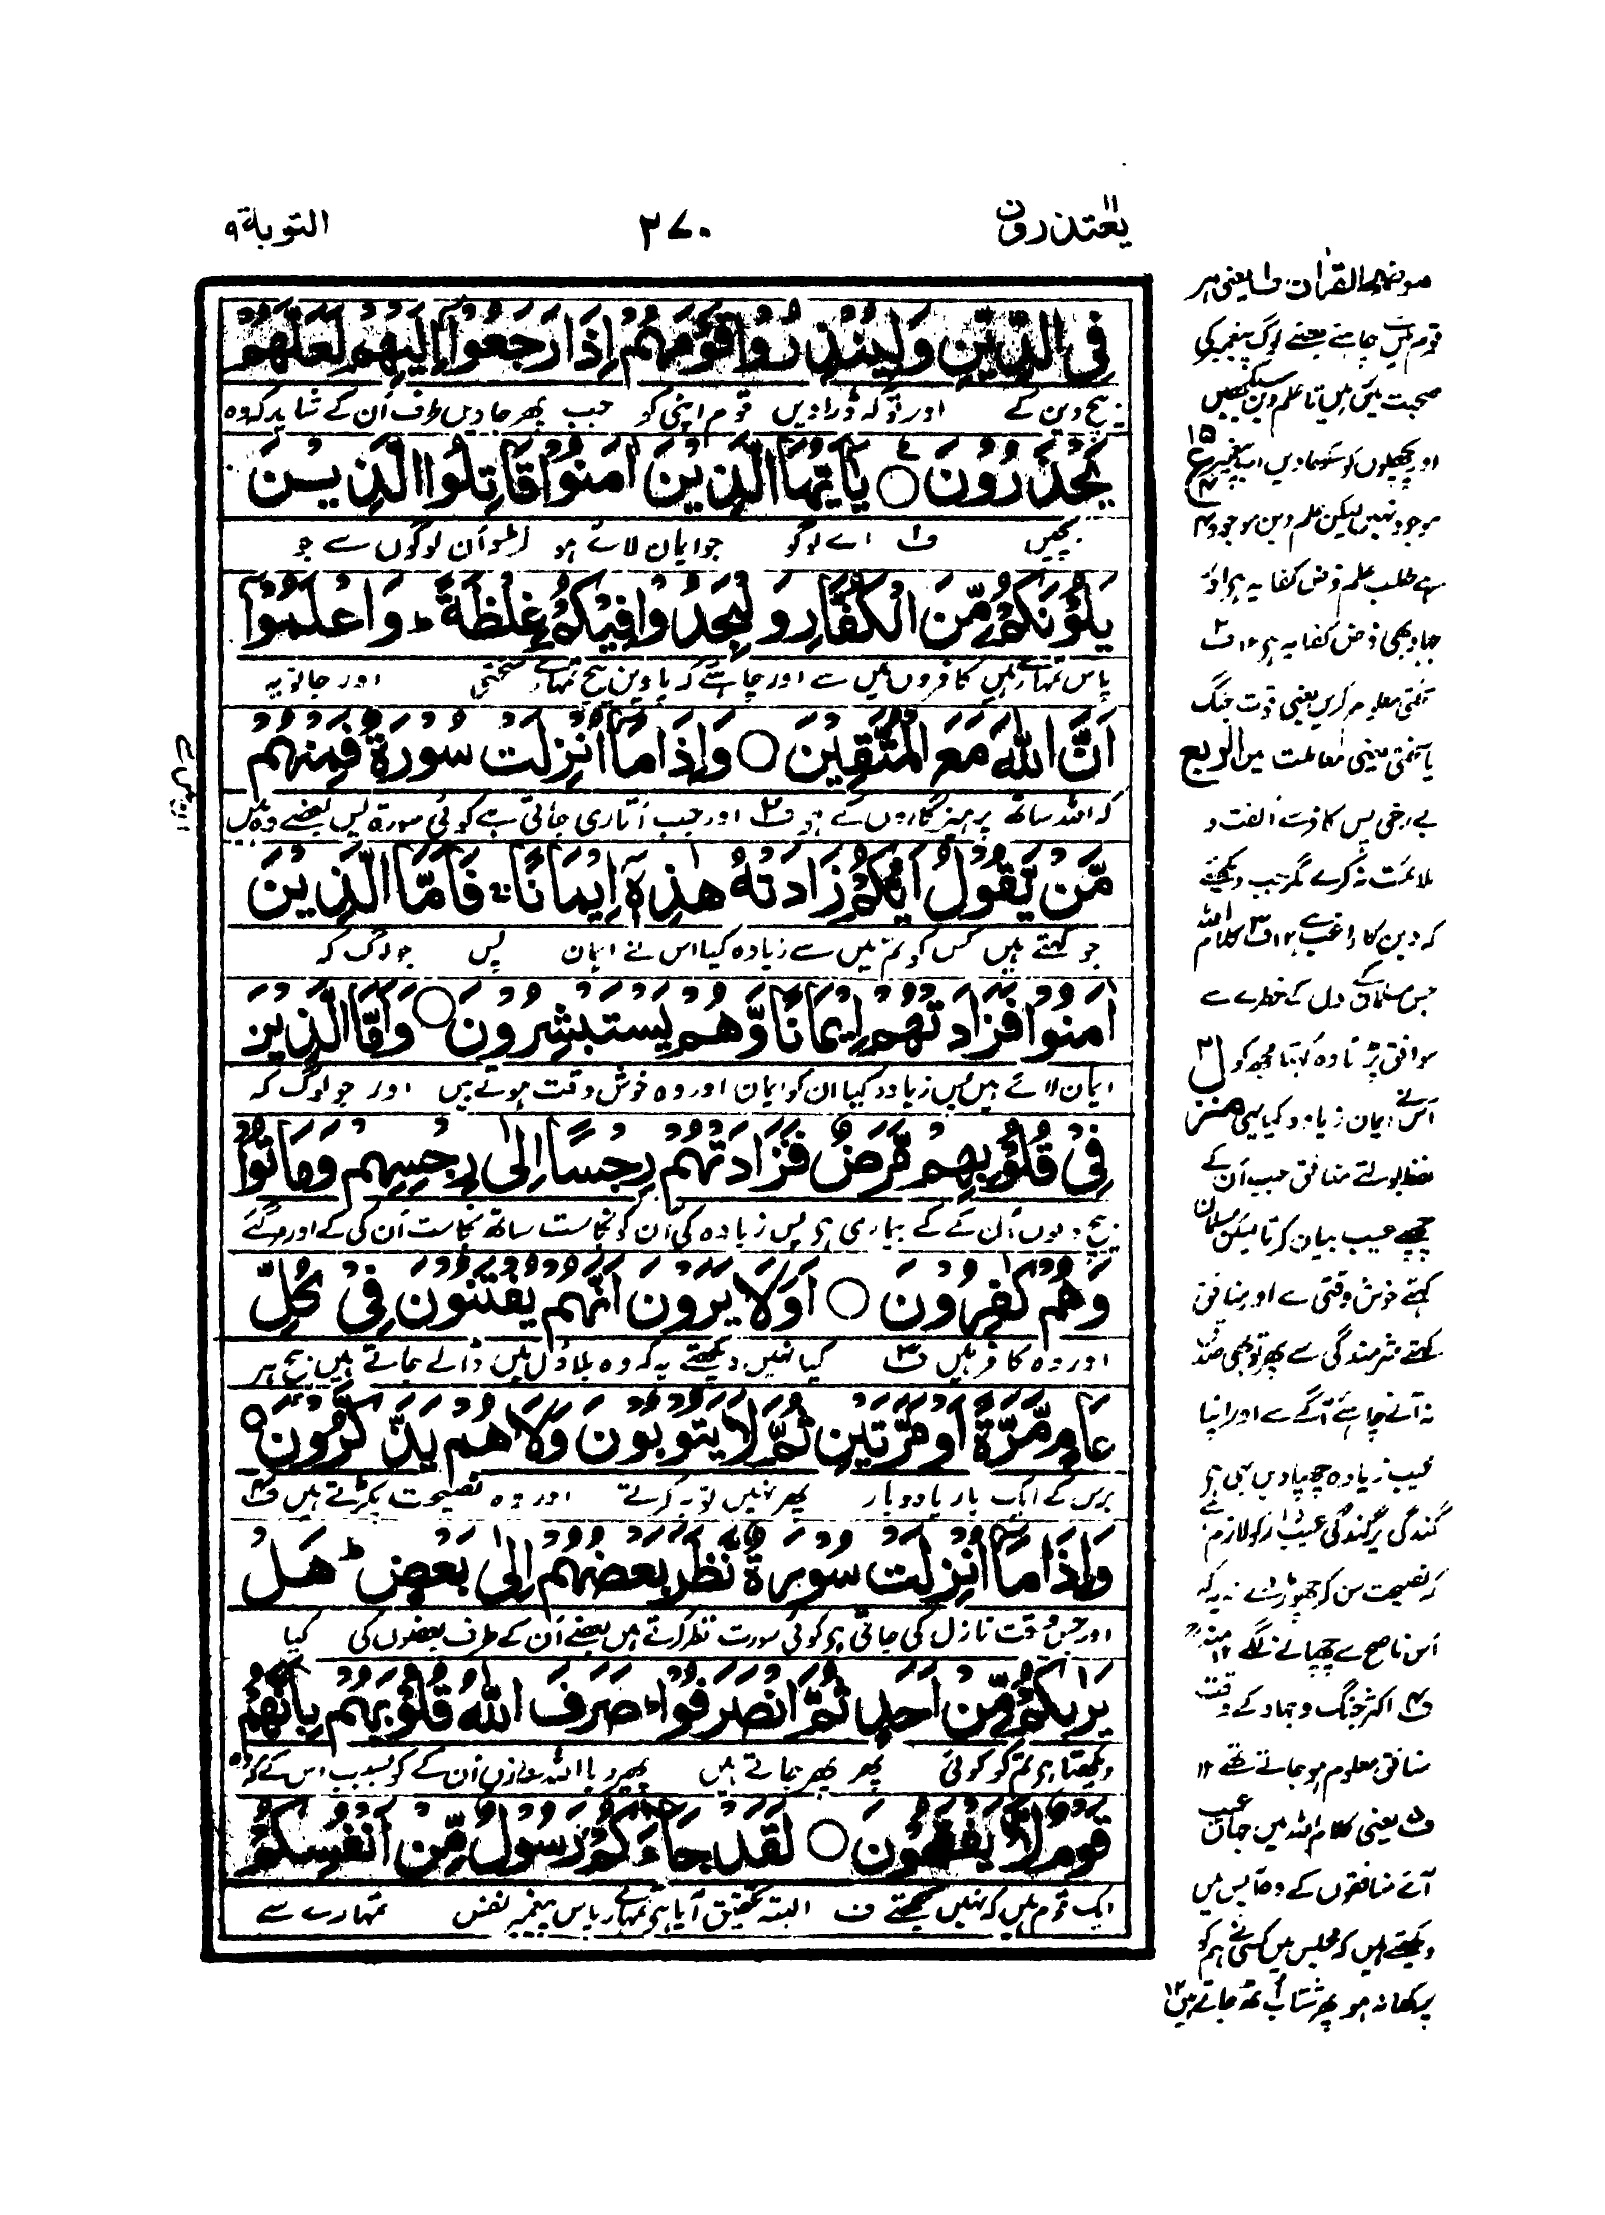 یعتذرون ۱۱
۲۷۰
التوبة ۹
فِي الدِّيْنِ وَلِيُنْذِرُوْا قَوْمَهُمْ اِذَا رَجَعُوْٓا اِلَيْهِمْ لَعَلَّهُمْ
بیچ دین کے اور تو کہ ڈراویں قوم اپنی کو جب پھر جاویں طرف اُن کے شاید کہ وہ
يَحْذَرُوْنَ ○ يٰٓاَيُّهَا الَّذِيْنَ اٰمَنُوْا قَاتِلُوا الَّذِيْنَ
بچیں ف۱ اے لوگو جو ایمان لائے ہو لڑو اُن لوگوں سے جو
يَلُوْنَكُمْ مِّنَ الْكُفَّارِ وَلْيَجِدُوْا فِيْكُمْ غِلْظَةً ؕ وَاعْلَمُوْٓا
پاس تمہارے ہیں کافروں میں سے اور چاہئے کہ پاویں بیچ تمہارے سختی اور جانو یہ
اَنَّ اللّٰهَ مَعَ الْمُتَّقِيْنَ ○ وَاِذَا مَآ اُنْزِلَتْ سُوْرَةٌ فَمِنْهُمْ
کہ اللہ ساتھ پرہیزگاروں کے ہے ف۲ اور جب اُتاری جاتی ہے کوئی سورۃ پس بعضے وہ ہیں
مَّنْ يَّقُوْلُ اَيُّكُمْ زَادَتْهُ هٰذِهٖٓ اِيْمَانًا ۚ فَاَمَّا الَّذِيْنَ
جو کہتے ہیں کس کو تم میں سے زیادہ کیا اس نے ایمان پس جو لوگ کہ
اٰمَنُوْا فَزَادَتْهُمْ اِيْمَانًا وَّهُمْ يَسْتَبْشِرُوْنَ ○ وَاَمَّا الَّذِيْنَ
ایمان لائے ہیں پس زیادہ کیا ان کو ایمان اور وہ خوش وقت ہوتے ہیں اور جو لوگ کہ
فِيْ قُلُوْبِهِمْ مَّرَضٌ فَزَادَتْهُمْ رِجْسًا اِلٰى رِجْسِهِمْ وَمَاتُوْا
بیچ دلوں اُن کے کے بیماری ہے پس زیادہ کی اُن کو نجاست ساتھ نجاست اُن کی کے اور مر گئے
وَهُمْ كٰفِرُوْنَ ○ اَوَلَا يَرَوْنَ اَنَّهُمْ يُفْتَنُوْنَ فِيْ كُلِّ
اور وہ کافر ہیں ف۳ کیا نہیں دیکھتے یہ کہ وہ بلاؤں میں ڈالے جاتے ہیں بیچ ہر
عَامٍ مَّرَّةً اَوْ مَرَّتَيْنِ ثُمَّ لَا يَتُوْبُوْنَ وَلَا هُمْ يَذَّكَّرُوْنَ ○
برس کے ایک بار یا دو بار پھر نہیں توبہ کرتے اور نہ وہ نصیحت پکڑتے ہیں ف۴
وَاِذَا مَآ اُنْزِلَتْ سُوْرَةٌ نَّظَرَ بَعْضُهُمْ اِلٰى بَعْضٍ ؕ هَلْ
اور جس وقت نازل کی جاتی ہے کوئی سورت نظر کرتے ہیں بعضے اُن کے طرف بعضوں کی کیا
يَرٰىكُمْ مِّنْ اَحَدٍ ثُمَّ انْصَرَفُوْا ؕ صَرَفَ اللّٰهُ قُلُوْبَهُمْ بِاَنَّهُمْ
دیکھتا ہے تم کو کوئی پھر پھر جاتے ہیں پھیر دیا اللہ نے دلوں اُن کے کو بسبب اس کے کہ وہ
قَوْمٌ لَّا يَفْقَهُوْنَ ○ لَقَدْ جَآءَكُمْ رَسُوْلٌ مِّنْ اَنْفُسِكُمْ
ایک قوم ہیں کہ نہیں سمجھتے ف۵ البتہ تحقیق آیا ہے تمہارے پاس پیغمبر نفس تمہارے سے
موضح القرآن ف۱ یعنی ہر
قوم میں چاہئے بعضے لوگ پیغمبر کی
صحبت میں رہیں تا علم دین سیکھیں
اور پچھلوں کو سکھاویں اب پیغمبر
موجود نہیں لیکن علم دین موجود
ہے طلب علم فرض کفایہ ہے اور
جہاد بھی فرض کفایہ ہے ۱۲ ف۲
سختی معلوم کریں یعنی قوت جنگ
یا سختی یعنی معاملت میں
بے رخی پس کافر سے الفت و
ملائمت نہ کرے مگر جب دیکھئے
کہ دین کا راغب ہے ۱۲ ف۳ کلام اللہ
جس مسلمان کے دل کے خطرے سے
موافق پڑتا وہ کہتا مجھ کو
اس نے ایمان زیادہ کیا یہی
لفظ بولتے منافق جب اُن کے
چھپے عیب بیان کرتا لیکن مسلمان
کہتے خوش وقتی سے اور منافق
کہتے شرمندگی سے پھر توبھی
نہ آتے چاہئے آگے سے اور اپنا
عیب زیادہ چھپاویں یہی ہے
گندگی پر گندگی عیب دار کو لازم ہے
کہ نصیحت سن کر چھوڑ دے نہ یہ کہ
اس ناصح سے چھپانے لگے ۱۲ منہ
ف۴ اکثر جنگ و جہاد کے وقت
منافق معلوم ہو جاتے تھے ۱۲
ف۵ یعنی کلام اللہ میں جہاں عیب
آتے منافقوں کے وہ آپس میں
دیکھتے ہیں کہ مجلس میں کسی نے ہم کو
پرکھا نہ ہو پھر شتاب اُٹھ جاتے ہیں ۱۲